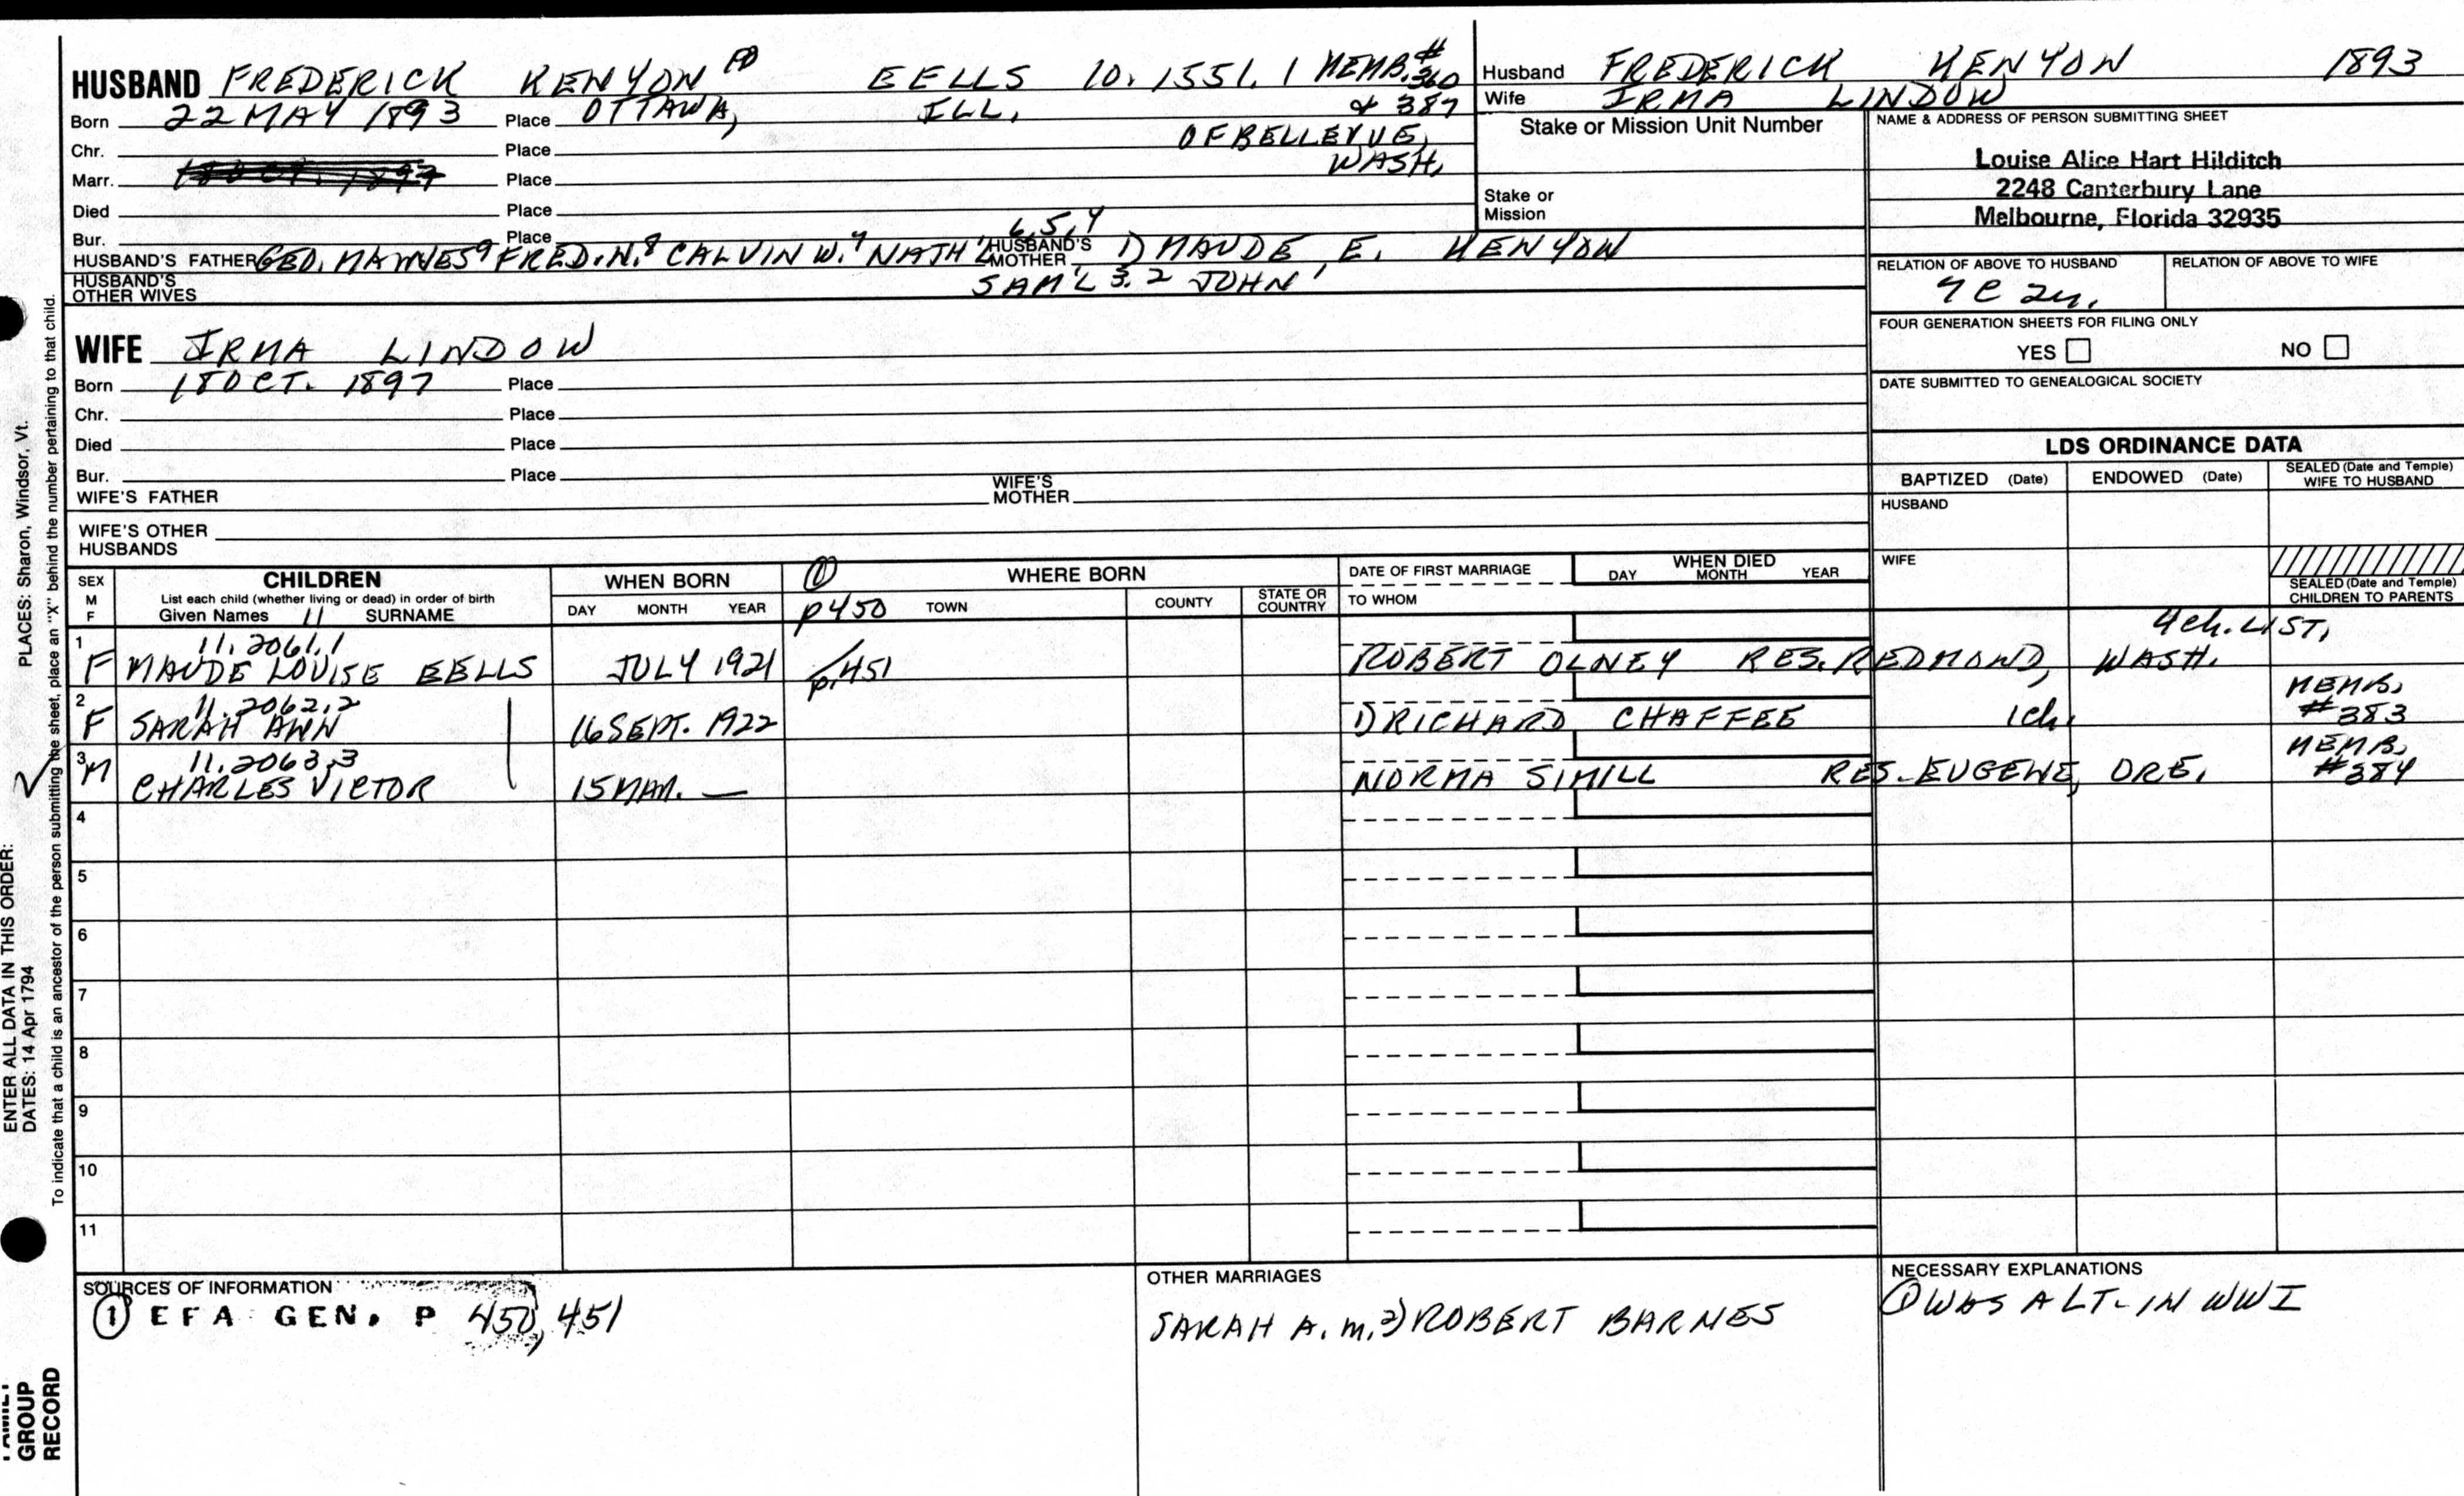 HUSBAND FREDERICK KENYON 10 EELLS 10.1551.1 MEMB.# 360 & 387
Born 22 MAY 1893 Place OTTAWA, ILL.
Chr. Place OF BELLEVUE,
WASH.
Marr. 18 OCT. 1897 Place
Died Place
Bur. Place
HUSBAND'S FATHER GEO. HAYNES 9 FRED. N. 8 CALVIN W. 7 NATH'L 6,5,4 HUSBAND'S MOTHER 1) MAUDE E. KENYON
HUSBAND'S OTHER WIVES SAM'L 3.2 JOHN 1
Husband FREDERICK KENYON 1893
Wife IRMA LINDOW
Stake or Mission Unit Number
Stake or Mission
NAME & ADDRESS OF PERSON SUBMITTING SHEET
Louise Alice Hart Hilditch
2248 Canterbury Lane
Melbourne, Florida 32935
RELATION OF ABOVE TO HUSBAND RELATION OF ABOVE TO WIFE
FOUR GENERATION SHEETS FOR FILING ONLY
YES NO
DATE SUBMITTED TO GENEALOGICAL SOCIETY
WIFE IRMA LINDOW
Born 18 OCT. 1897 Place
Chr. Place
Died Place
Bur. Place
WIFE'S FATHER WIFE'S MOTHER
WIFE'S OTHER HUSBANDS
LDS ORDINANCE DATA
BAPTIZED (Date) ENDOWED (Date) SEALED (Date and Temple) WIFE TO HUSBAND
HUSBAND
WIFE
SEALED (Date and Temple) CHILDREN TO PARENTS
SEX M F
CHILDREN
List each child (whether living or dead) in order of birth
Given Names 11 SURNAME
WHEN BORN
DAY MONTH YEAR
① WHERE BORN
p450 TOWN COUNTY STATE OR COUNTRY
DATE OF FIRST MARRIAGE
TO WHOM
WHEN DIED
DAY MONTH YEAR
4 ch. LIST,
1 F 11.2061.1 MAUDE LOUISE EELLS JULY 1921 p.451 ROBERT OLNEY RES. REDMOND, WASH.
2 F 11.2062.2 SARAH ANN 16 SEPT. 1922 1) RICHARD CHAFFEE 1 ch. MEMB. #383
3 M 11.2063.3 CHARLES VICTOR 15 MAR. — NORMA SIMILL RES. EUGENE, ORE. MEMB. #384
4
5
6
7
8
9
10
11
SOURCES OF INFORMATION
① EFA GEN. P 450, 451
OTHER MARRIAGES
SARAH A. m. 2) ROBERT BARNES
NECESSARY EXPLANATIONS
① WAS A LT. IN WWI
PLACES: Sharon, Windsor, Vt.
To indicate that a child is an ancestor of the person submitting the sheet, place an "X" behind the number pertaining to that child.
ENTER ALL DATA IN THIS ORDER:
DATES: 14 Apr 1794
GROUP
RECORD